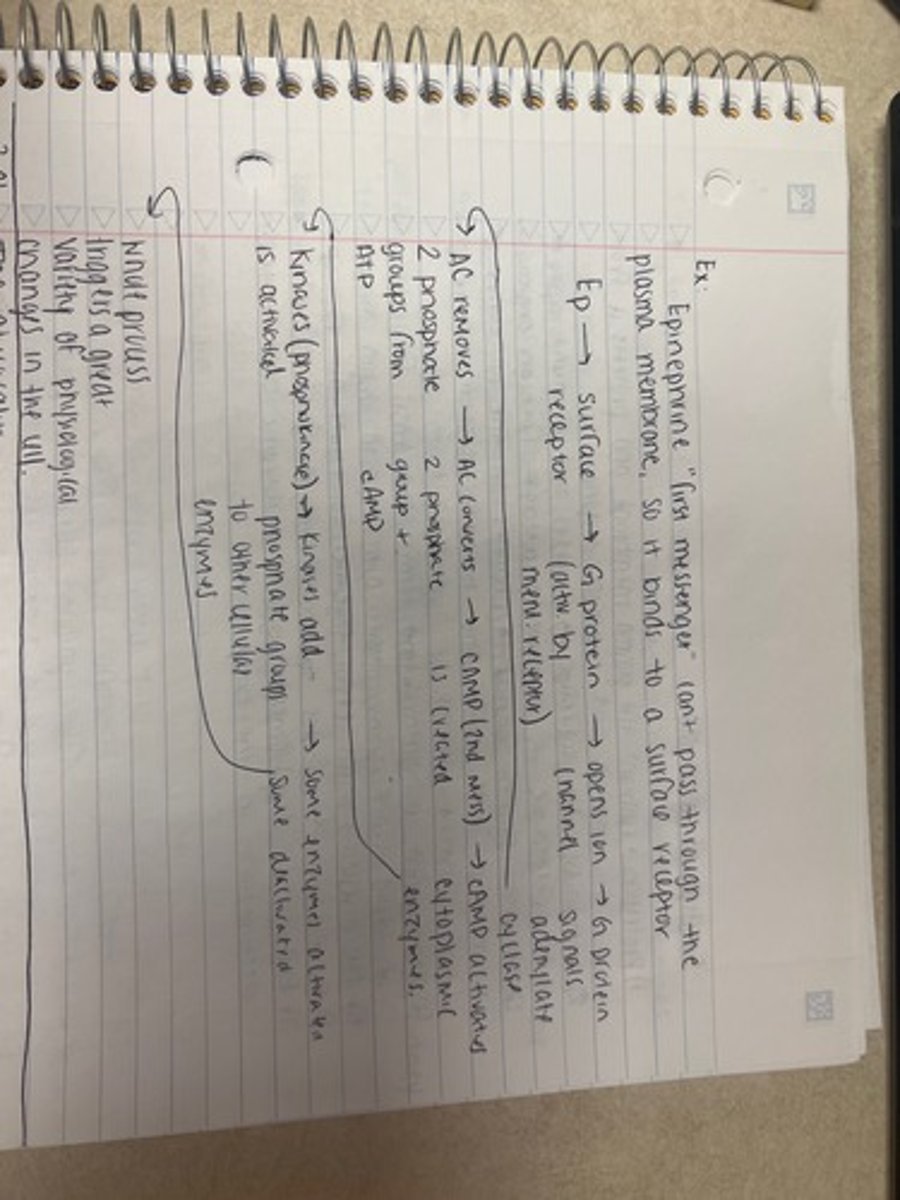 Ex.
Epinephrine "first messenger" can't pass through the
plasma membrane, so it binds to a surface receptor
Ep → surface → G protein → opens ion → G protein
receptor (activ. by channel signals
mem. receptor) adenylate
cyclase
AC removes → AC converts → cAMP (2nd mess) → cAMP activates
2 phosphate 2 phosphate is created cytoplasmic
groups from group + enzymes.
ATP cAMP
Kinases (phosphokinase) → kinases add → some enzymes activated
is activated phosphate groups some deactivated
to other cellular
enzymes
whole process
triggers a great
variety of physiological
changes in the cell.